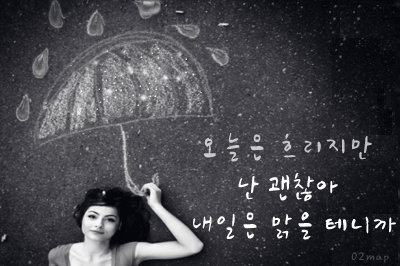 오늘은 흐리지만
난 괜찮아
내일은 맑을 테니까
02map